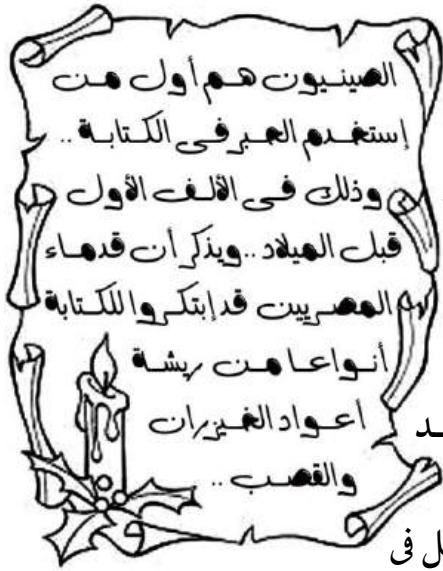 الصينيون هم أول من
إستخدم الحبر فى الكتابة ..
وذلك فى الألف الأول
قبل الميلاد .. ويذكر أن قدماء
المصريين قد إبتكروا للكتابة
أنواعا من ريشة
أعواد الخيزران
والقصب ..